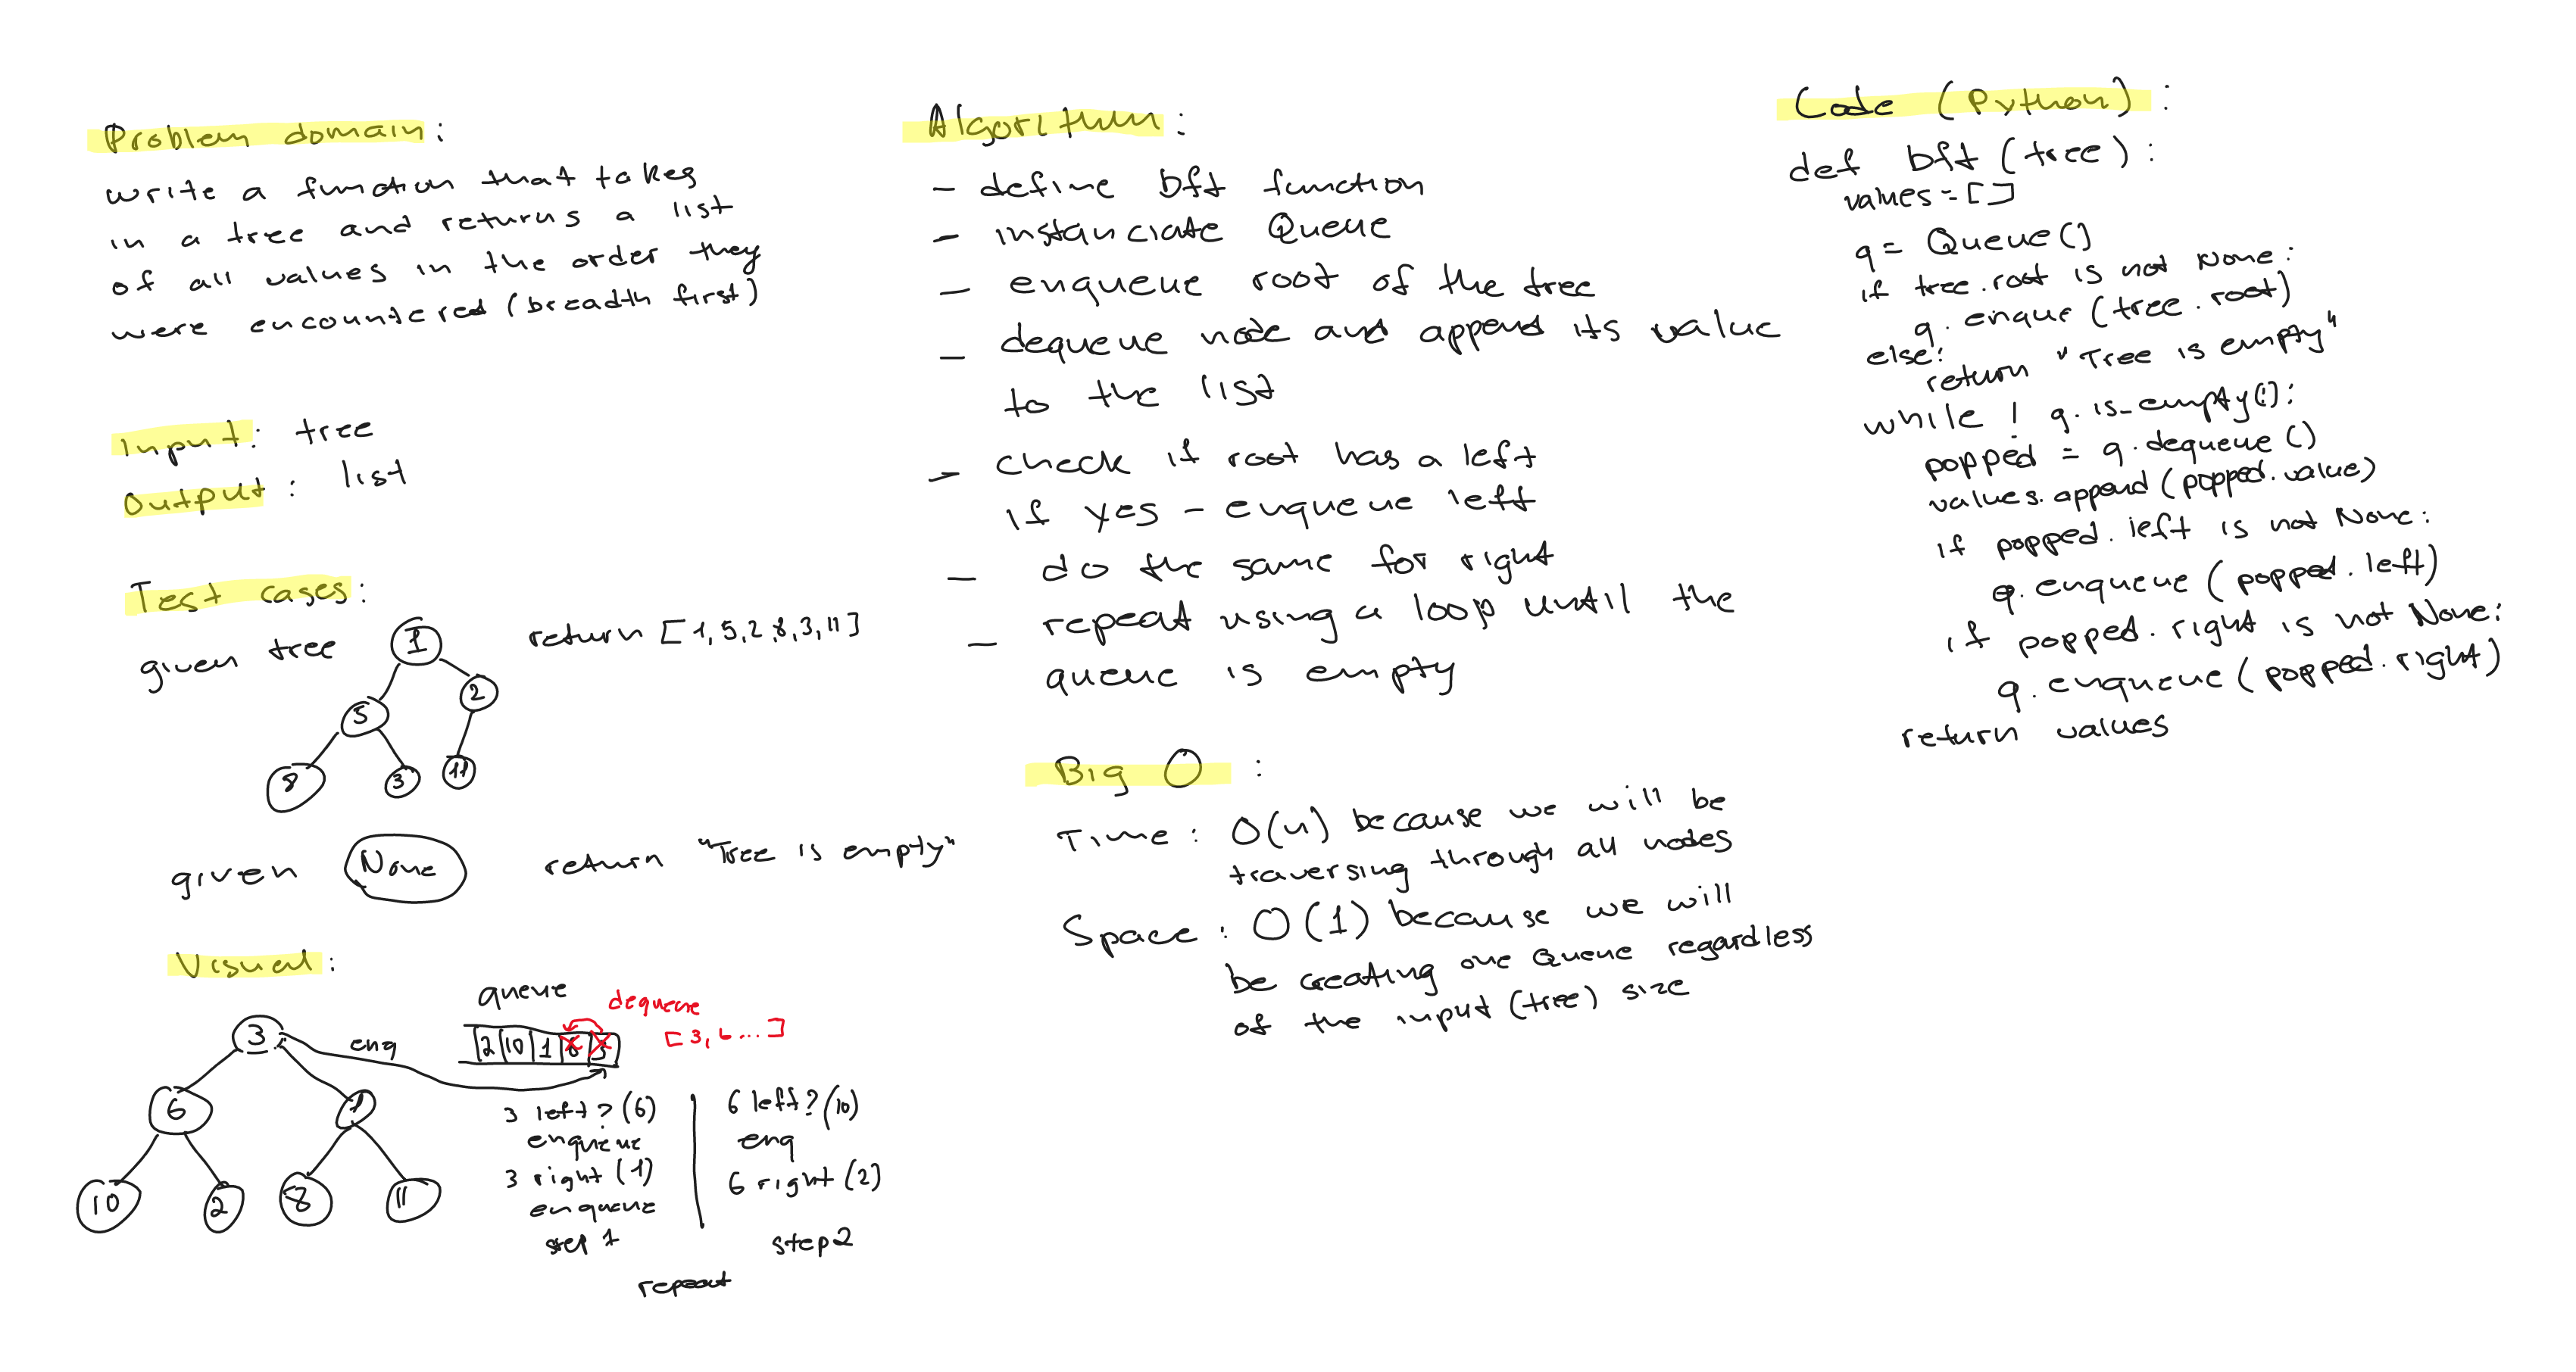 Problem domain:
write a function that takes
in a tree and returns a list
of all values in the order they
were encountered (breadth first)
Input: tree
Output: list
Test cases:
given tree
1
2
5
8
3
11
return [1,5,2,8,3,11]
given None return "Tree is empty"
Visual:
3
6
1
10
2
8
11
enq
queue
dequeue
2 10 1 6 3
[3, 6...]
3 left? (6)
enqueue
3 right (1)
enqueue
step 1
6 left? (10)
enq
6 right (2)
step 2
repeat
Algorithm:
- define bft function
- instanciate Queue
- enqueue root of the tree
- dequeue node and append its value
to the list
- check if root has a left
if yes - enqueue left
- do the same for right
- repeat using a loop until the
queue is empty
Big O:
Time: O(n) because we will be
traversing through all nodes
Space: O(1) because we will
be creating one Queue regardless
of the input (tree) size
Code (Python):
def bft(tree):
values=[]
q = Queue()
if tree.root is not None:
q.enque(tree.root)
else:
return "Tree is empty"
while ! q.is_empty():
popped = q.dequeue()
values.append(popped.value)
if popped.left is not None:
q.enqueue(popped.left)
if popped.right is not None:
q.enqueue(popped.right)
return values